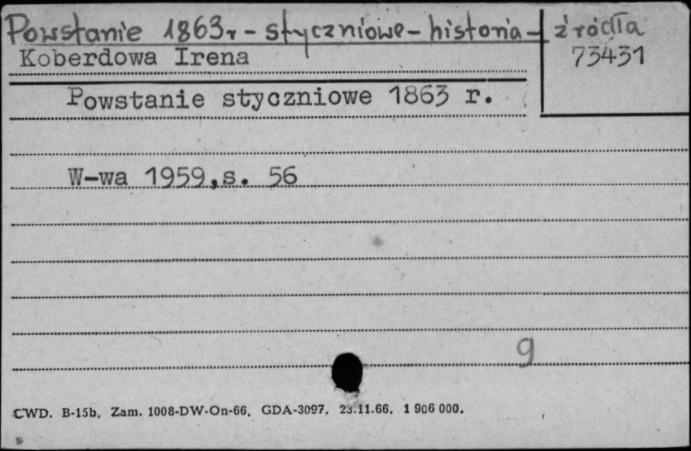 Powstanie 1863r - styczniowe - historia - źródła
Koberdowa Irena
73431
Powstanie styczniowe 1863 r.
W-wa 1959,s. 56
9
CWD. B-15b, Zam. 1008-DW-On-66, GDA-3097, 23.11.66. 1 906 000.